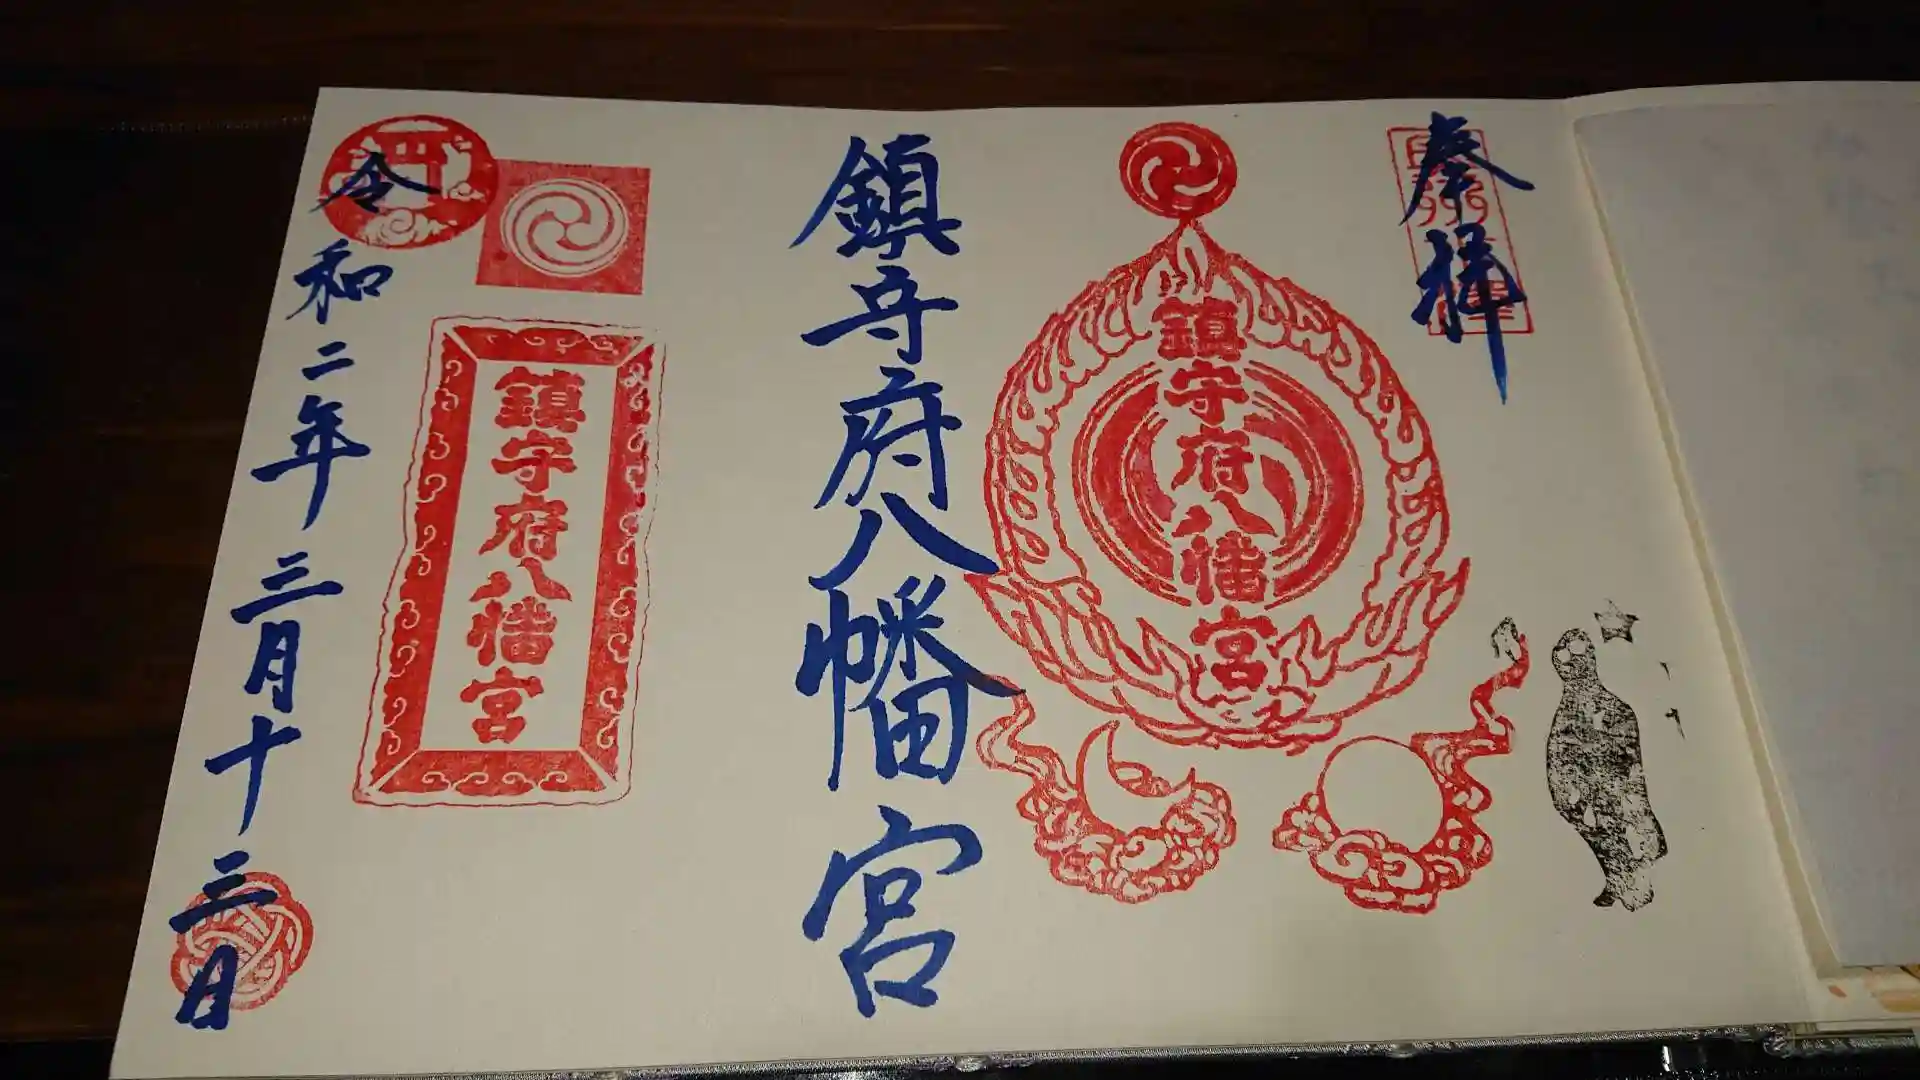 奉拝
鎮守府八幡宮
鎮守府八幡宮
鎮守府八幡宮
令和二年三月十三日